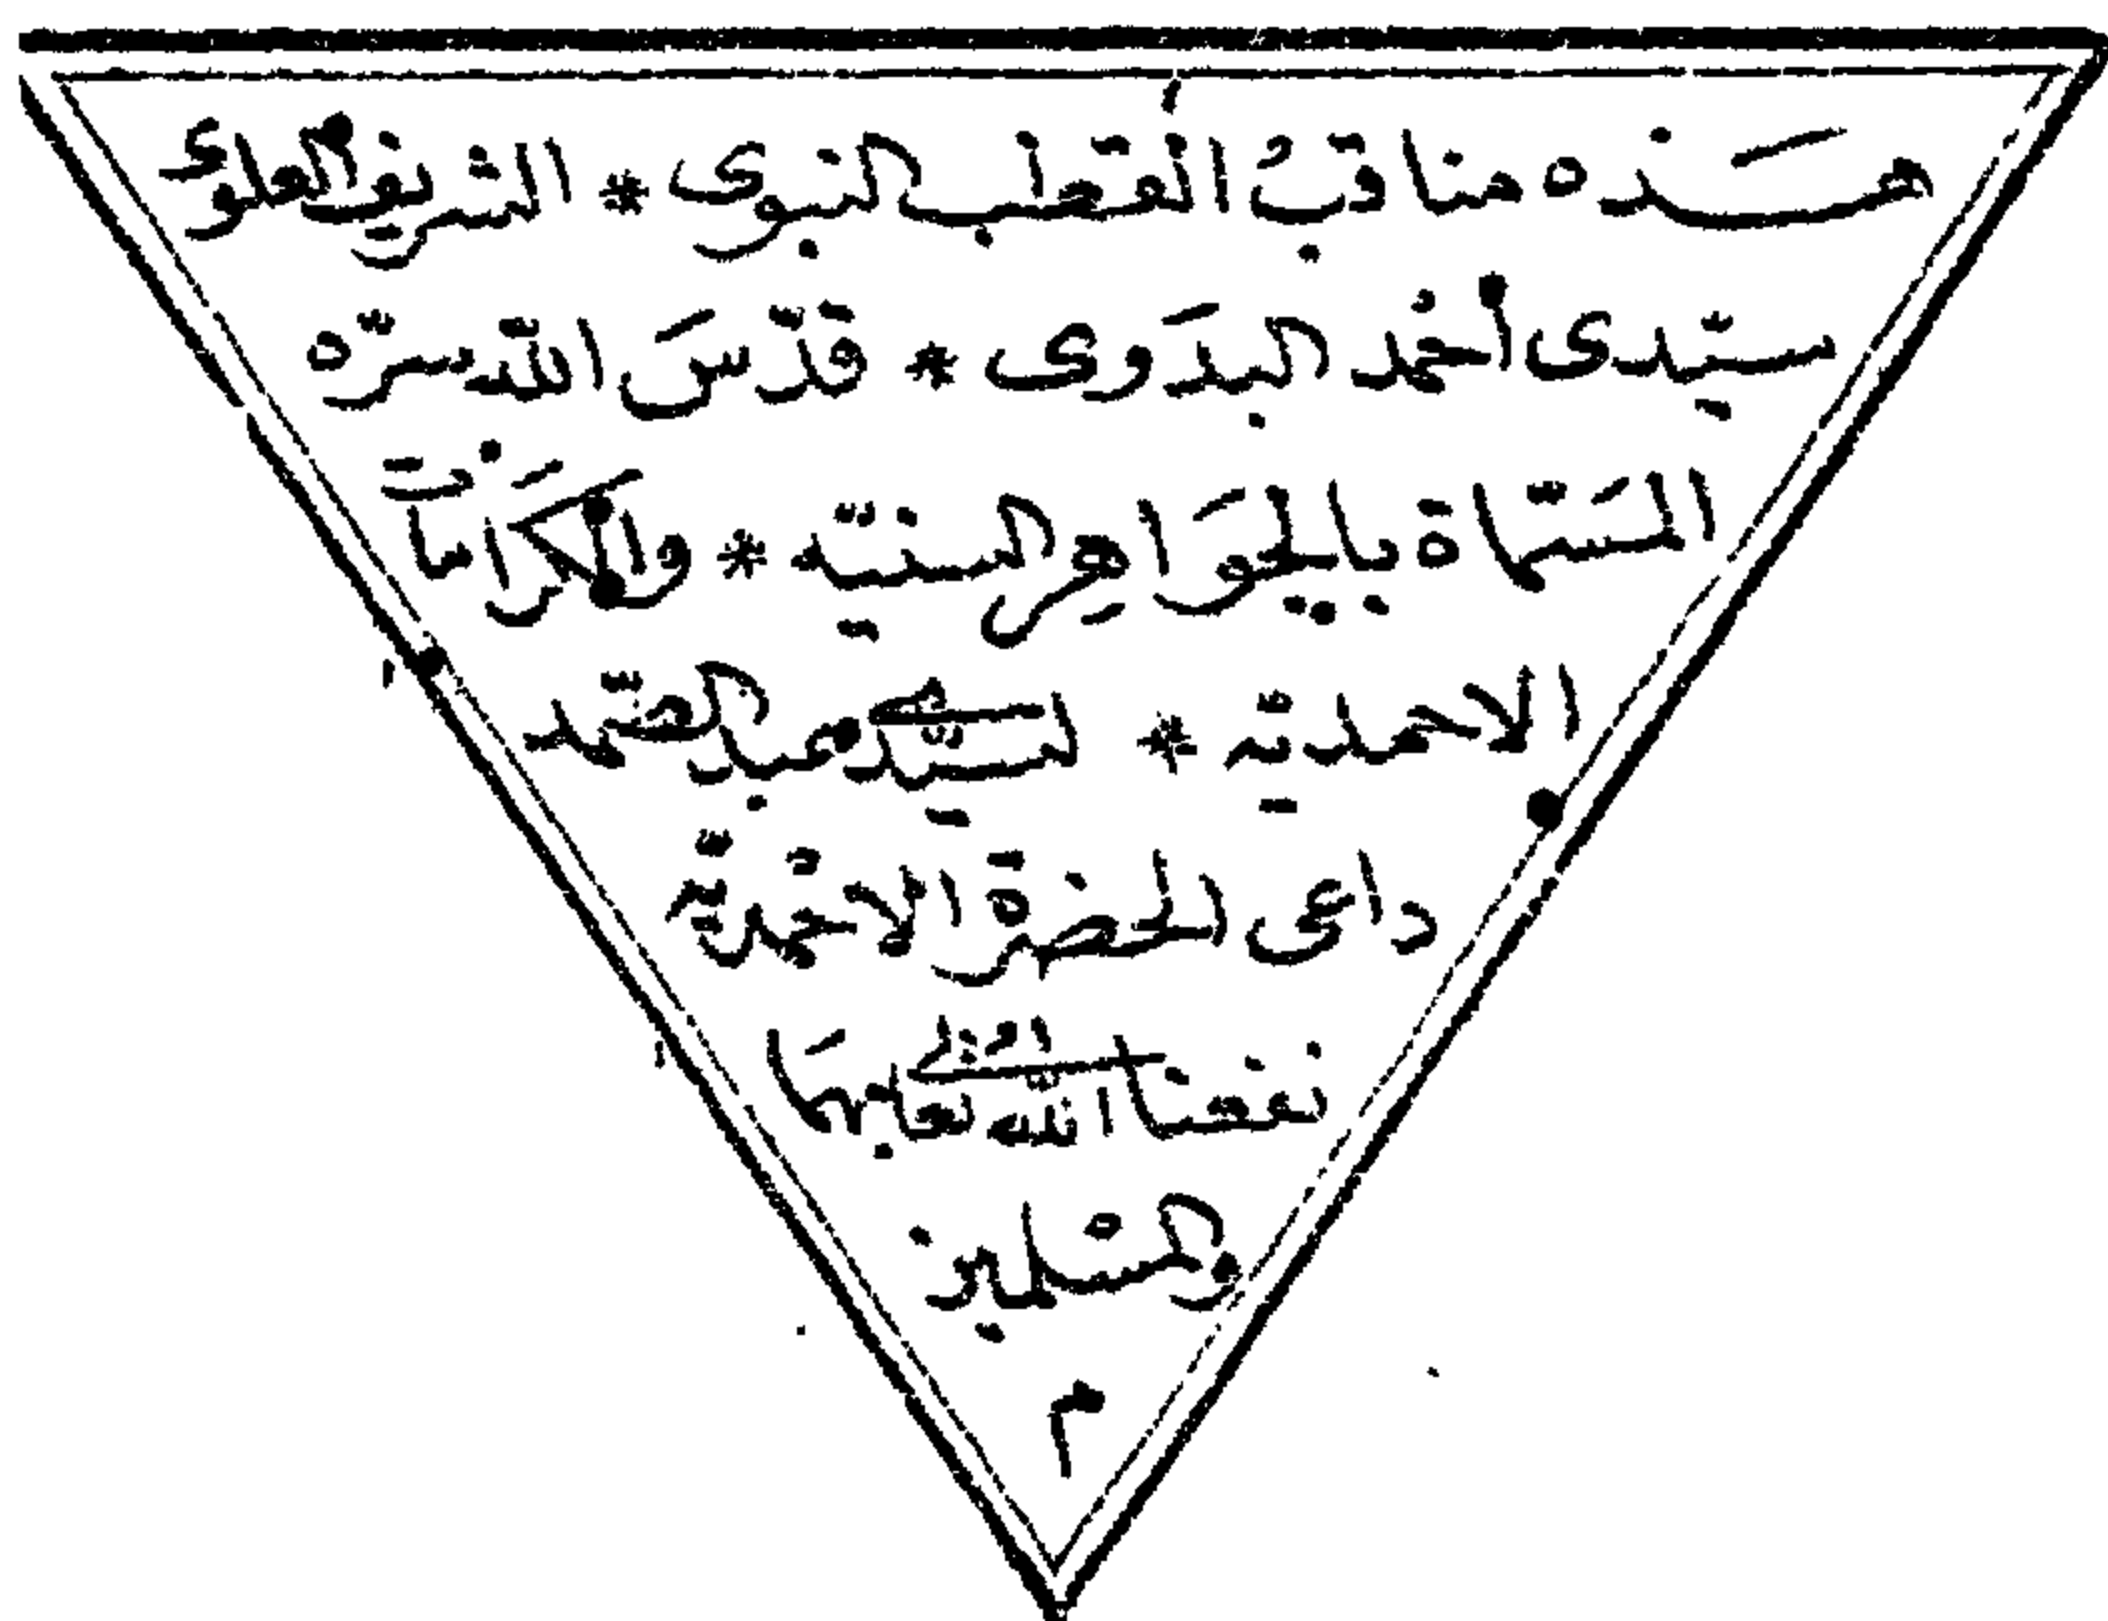 هَذه مناقبُ القطب النبوى * الشريف العلوى
سيّدى أحْمد البدَوى * قدّسَ الله سرّه
المسَمّاة بالجوَاهِر السنيّه * والكرَامَات
الاحمديّه * لسيّدى عبد الصّمد
داعى الحضرة الاحْمديّه
نفعنا الله تعالى بهمَا
والمسْلمين
م